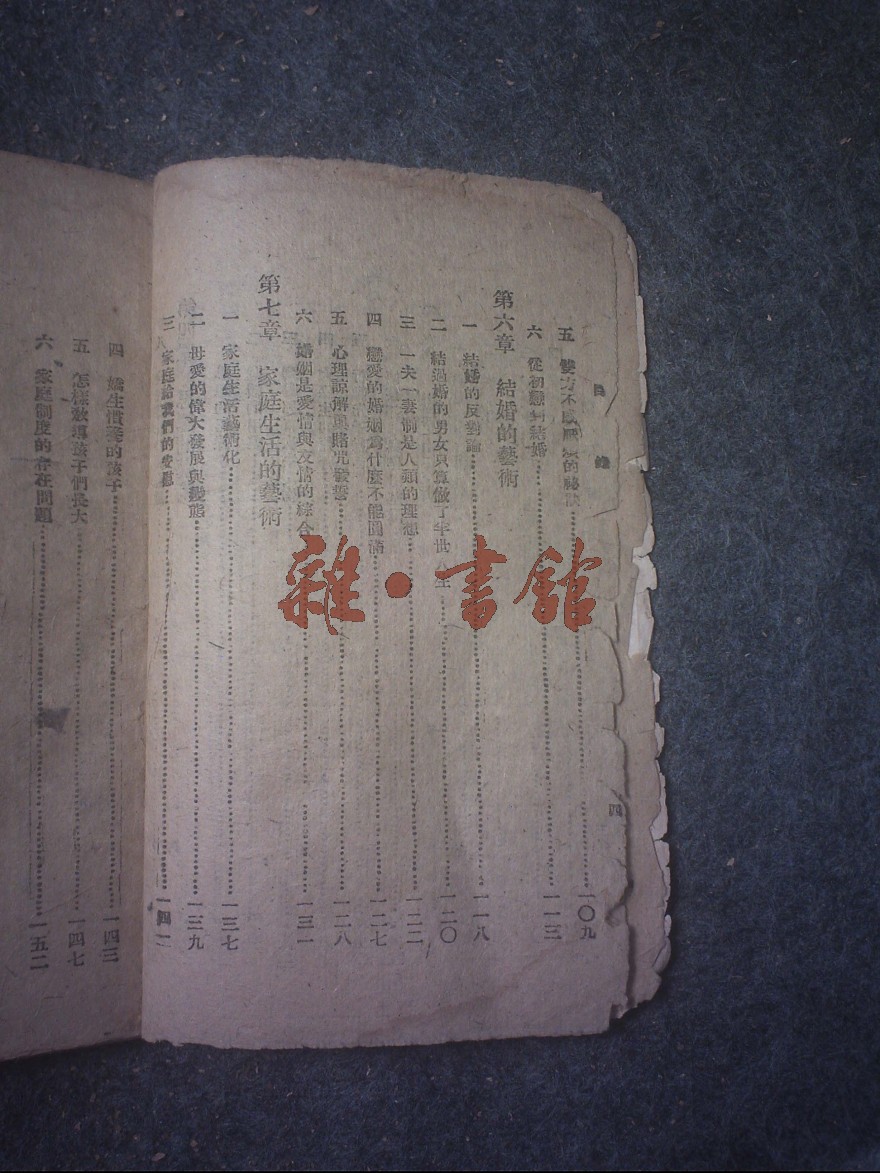 目錄
四
五 雙方不厭的秘訣 一〇九
六 從初戀到結婚 一一三
第六章 結婚的藝術
一 結婚的反對論 一一八
二 結過婚的男女只算做了半世人生 一二〇
三 一夫一妻制是人類的理想 一二二
四 戀愛的婚姻為什麼不能圓滿 一二七
五 心理諒解與賭咒發誓 一二八
六 婚姻是愛情與友情的綜合 一三一
第七章 家庭生活的藝術
一 家庭生活藝術化 一三七
二 母愛的偉大發展與變態 一三九
三 家庭給我們的安慰 一四二
四 嬌生慣養的孩子 一四三
五 怎樣教導孩子們長大 一四七
六 家庭制度的存在問題 一五二
雜·書館